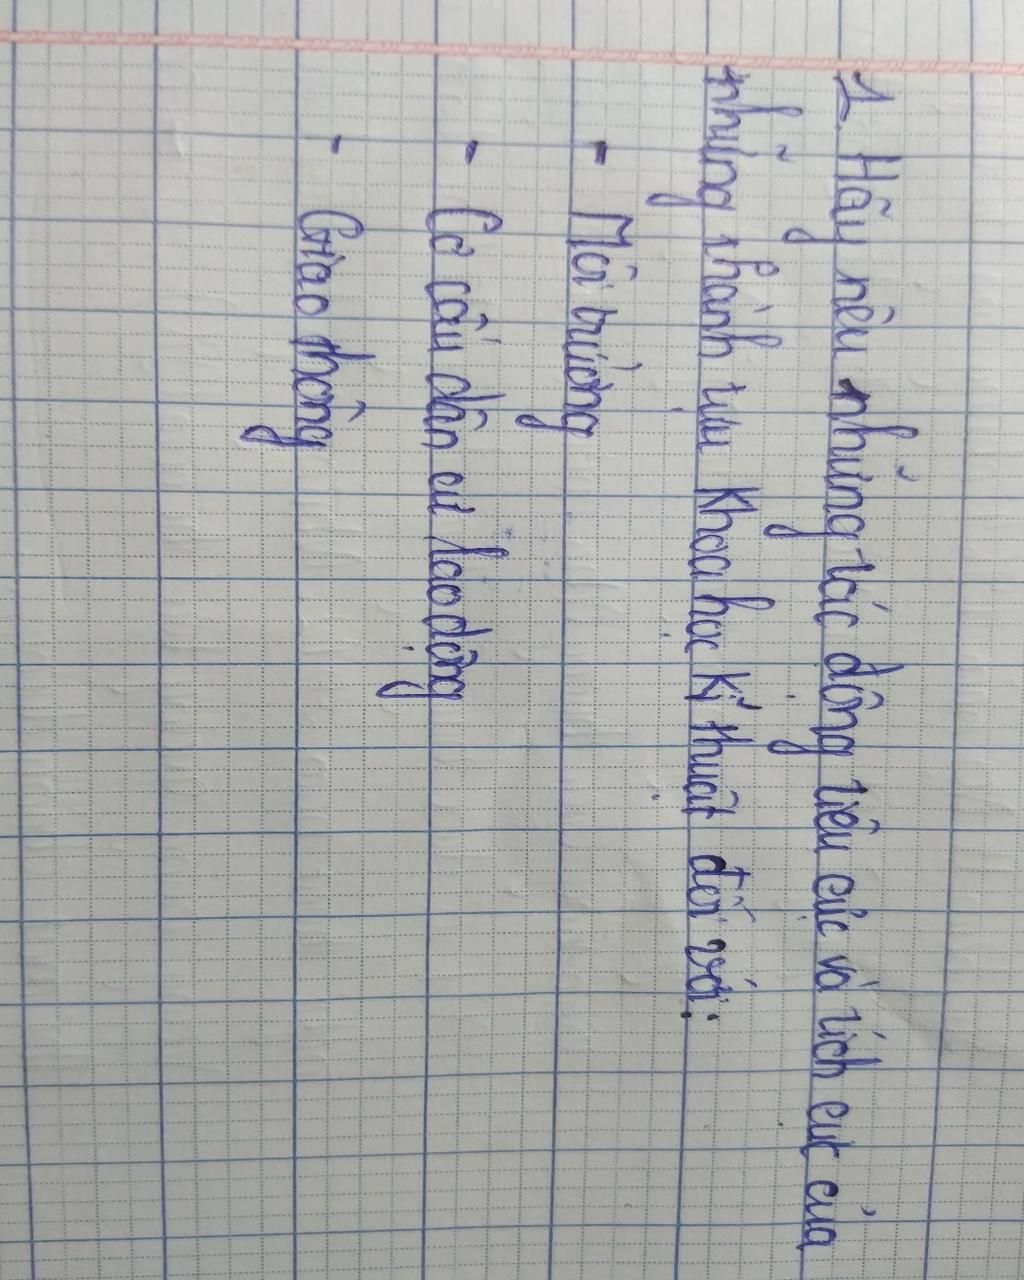 1. Hãy nêu những tác động tiêu cực và tích cực của
những thành tựu khoa học kĩ thuật đối với:
- Môi trường
- Cơ cấu dân cư lao động
- Giao thông